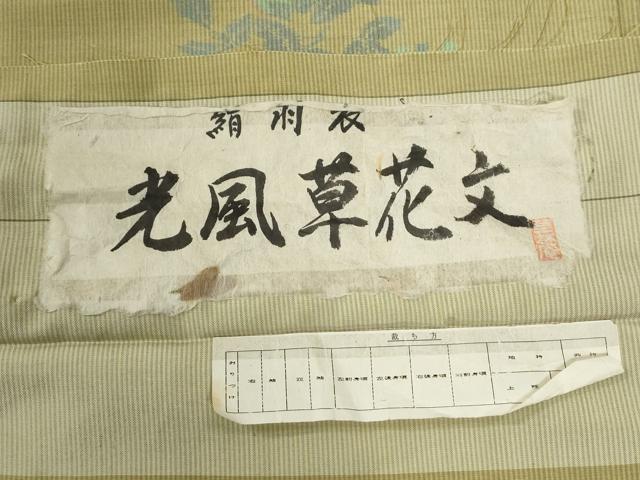 絹羽衣
光風草花文
裁ち方
おりつけ 右袖 左袖 左前身頃 左後身頃 右後身頃 右前身頃 地衿
上